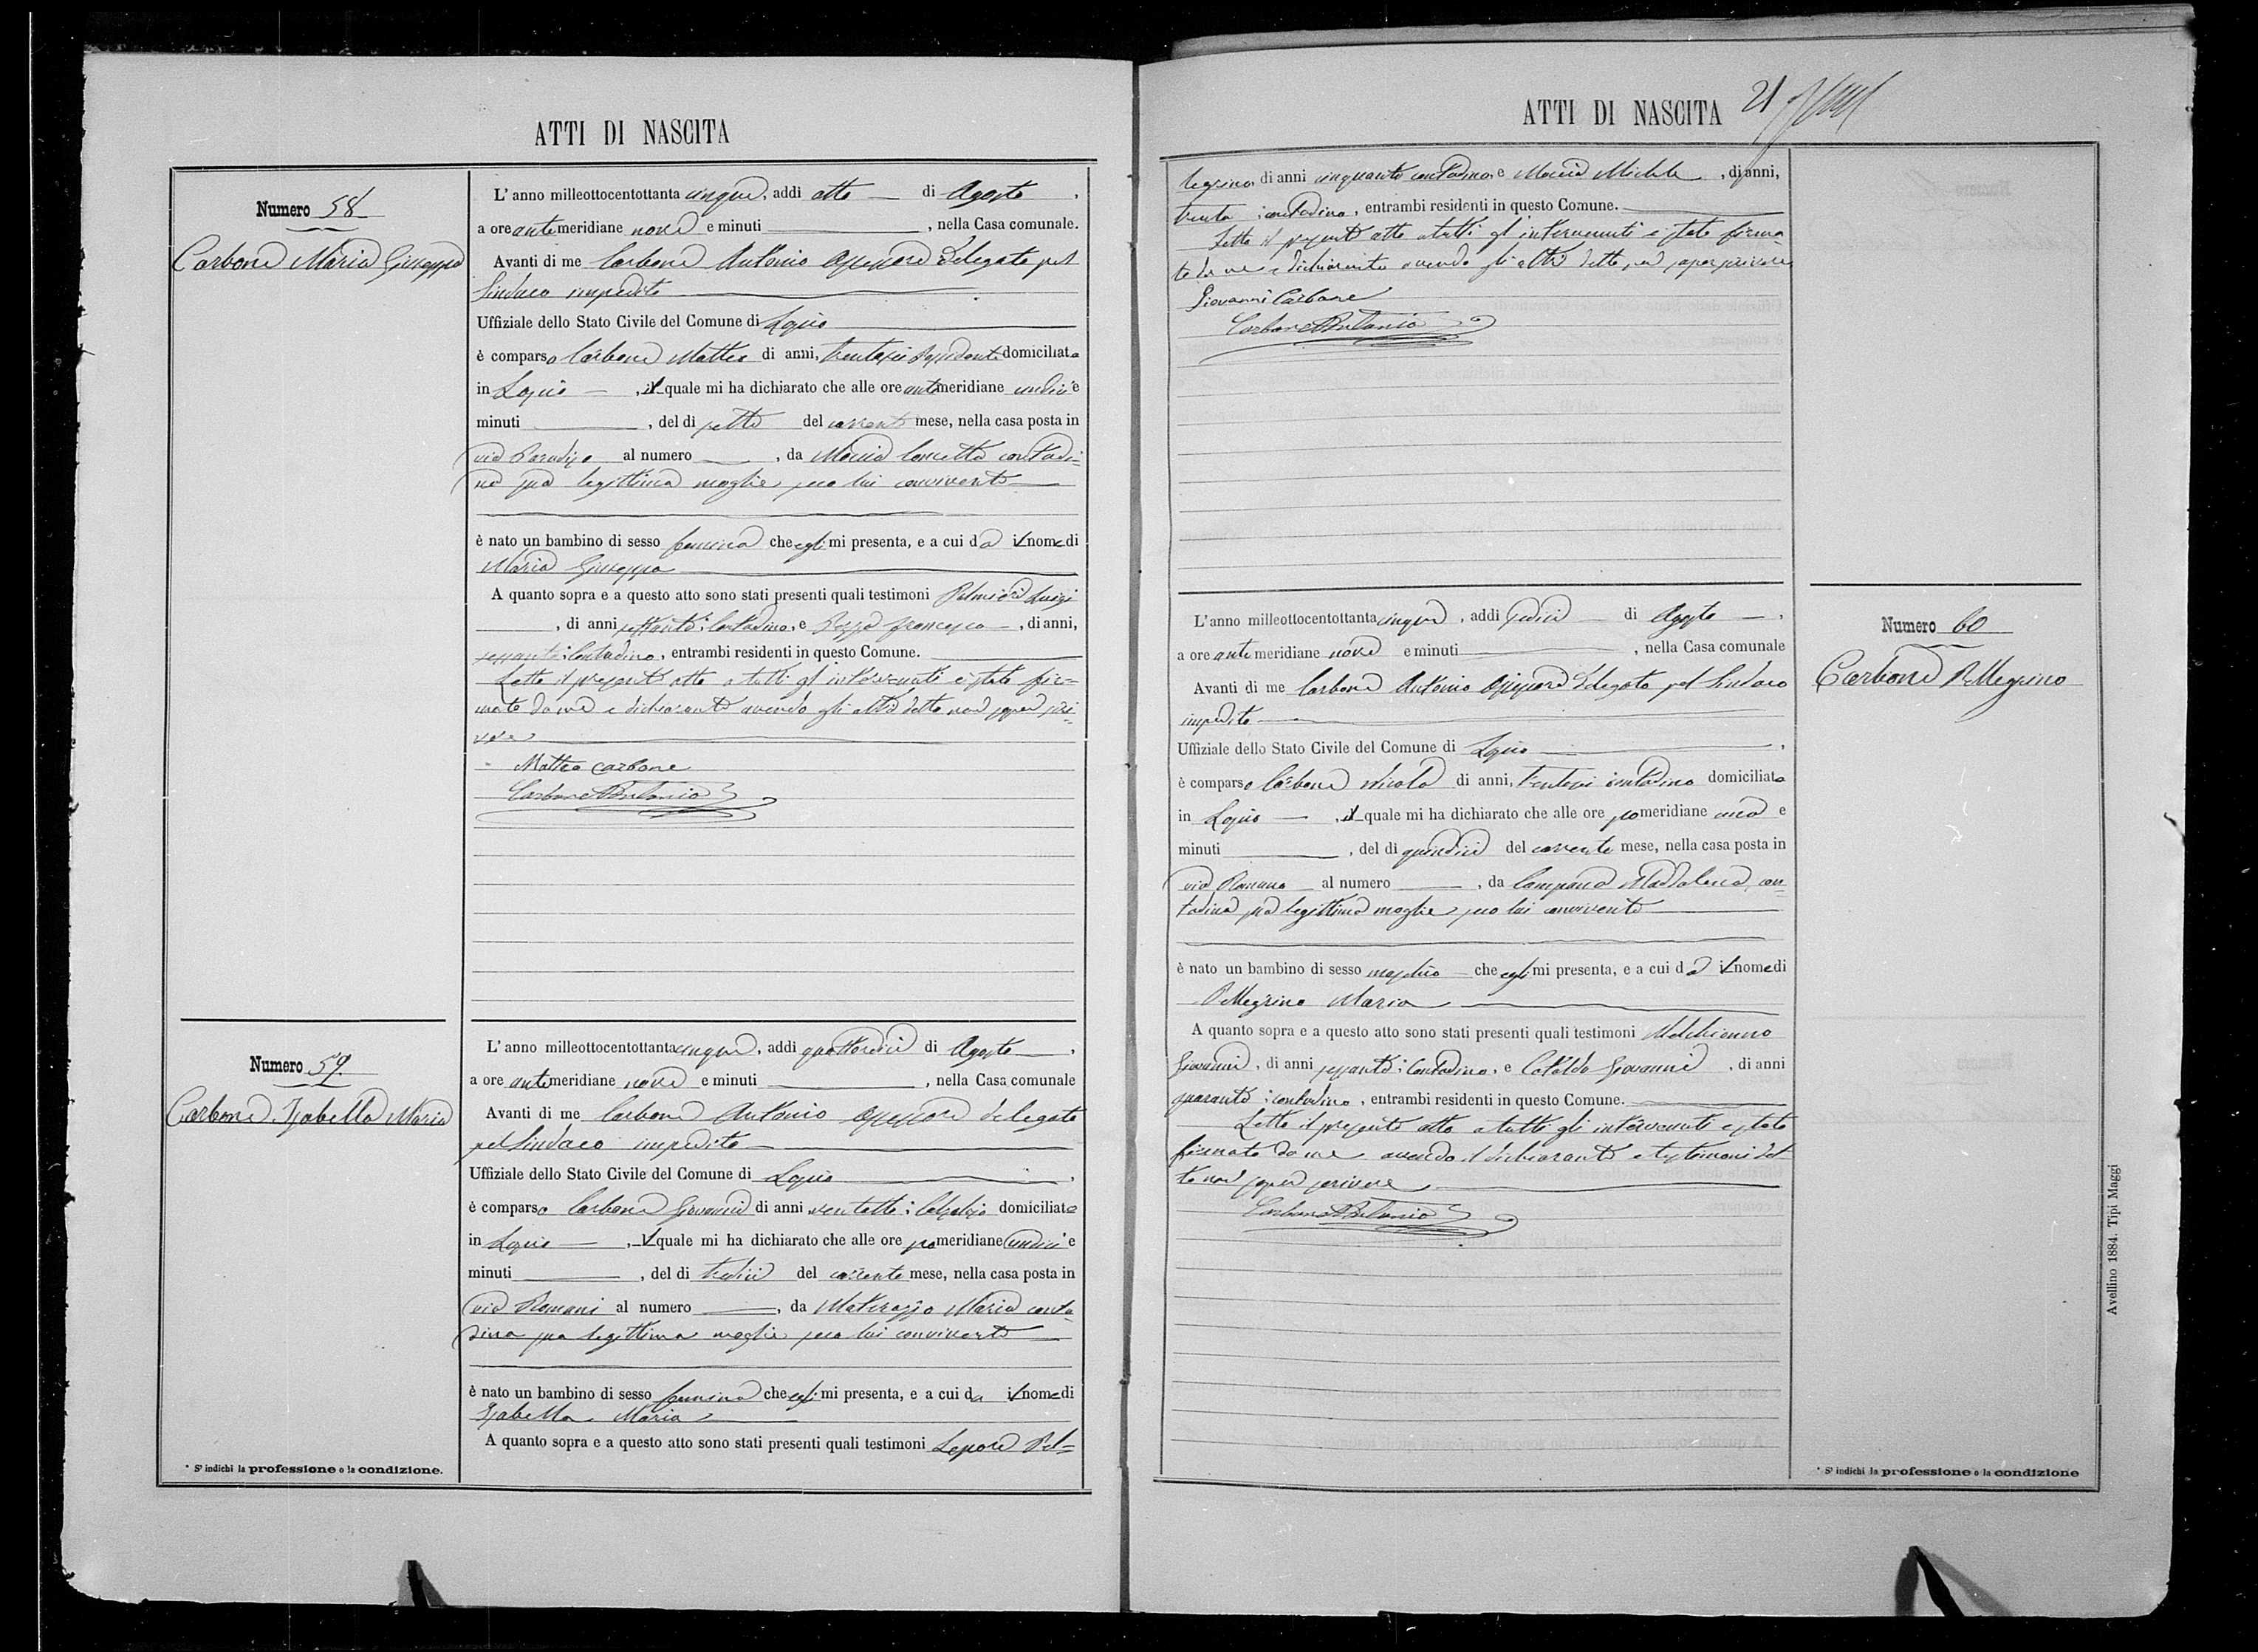 ATTI DI NASCITA
Numero 58
Carbone Maria Giuseppa
L'anno milleottocentottanta cinque, addì otto di Agosto,
a ore antimeridiane nove e minuti , nella Casa comunale.
Avanti di me Carbone Antonio Assessore Delegato pel
Sindaco impedito
Uffiziale dello Stato Civile del Comune di Lapio
è comparso Carbone Matteo di anni, trentasei domiciliato
in Lapio , il quale mi ha dichiarato che alle ore antimeridiane undici e
minuti , del dì sette del corrente mese, nella casa posta in
via Paradiso al numero , da Maria Concetta contadi-
na sua legittima moglie seco lui convivente
è nato un bambino di sesso femina che egli mi presenta, e a cui dà il nome di
Maria Giuseppa
A quanto sopra e a questo atto sono stati presenti quali testimoni Luigi
, di anni settanta: Contadino, e Francesco , di anni,
sessanta: Contadino, entrambi residenti in questo Comune.
Letto il presente atto a tutti gl'intervenuti è stato fir-
mato da me e dichiarante avendo gli altri detto non saper scri-
vere
Matteo Carbone
Carbone Antonio
Numero 59.
Carbone Isabella Maria
L'anno milleottocentottanta cinque, addì quattordici di Agosto,
a ore antimeridiane nove e minuti , nella Casa comunale
Avanti di me Carbone Antonio Assessore delegato
pel Sindaco impedito
Uffiziale dello Stato Civile del Comune di Lapio
è comparso Carbone Giovanni di anni ventotto: Calzolaio domiciliato
in Lapio , il quale mi ha dichiarato che alle ore pomeridiane undici e
minuti , del dì tredici del corrente mese, nella casa posta in
via Romani al numero , da Materazzo Maria conta-
dina sua legittima moglie seco lui convivente
è nato un bambino di sesso femina che egli mi presenta, e a cui da il nome di
Isabella Maria
A quanto sopra e a questo atto sono stati presenti quali testimoni Lepore Pel-
* S'indichi la professione o la condizione.
ATTI DI NASCITA 21
legrino, di anni cinquanta contadino, e Michele , di anni,
trenta : contadino, entrambi residenti in questo Comune.
Letto il presente atto a tutti gl'intervenuti è stato firma-
to da me e dichiarante avendo gli altri detto non saper scrivere
Giovanni Carbone
Carbone Antonio
L'anno milleottocentottanta cinque, addì sedici di Agosto,
a ore antimeridiane nove e minuti , nella Casa comunale
Avanti di me Carbone Antonio Assessore Delegato pel Sindaco
impedito
Uffiziale dello Stato Civile del Comune di Lapio
è comparso Carbone Nicola di anni, trentasei contadino domiciliato
in Lapio , il quale mi ha dichiarato che alle ore pomeridiane una e
minuti , del dì quindici del corrente mese, nella casa posta in
via Romano al numero , da Campana Maddalena con-
tadina sua legittima moglie seco lui convivente
è nato un bambino di sesso maschio che egli mi presenta, e a cui dà il nome di
Pellegrino Maria
A quanto sopra e a questo atto sono stati presenti quali testimoni Melchionno
Giovanni, di anni sessanta: Contadino, e Cataldo Giovanni , di anni
quaranta: contadino, entrambi residenti in questo Comune.
Letto il presente atto a tutti gli intervenuti è stato
firmato da me avendo il dichiarante e testimoni det-
to non saper scrivere
Carbone Antonio
Numero 60
Carbone Pellegrino
* S'indichi la professione o la condizione
Avellino 1884. Tipi Maggi